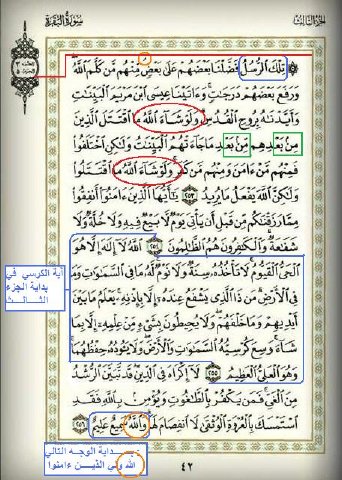 الجزء الثالث
سورة البقرة
۞ تِلْكَ ٱلرُّسُلُ فَضَّلْنَا بَعْضَهُمْ عَلَىٰ بَعْضٍ ۘ مِّنْهُم مَّن كَلَّمَ ٱللَّهُ ۖ
وَرَفَعَ بَعْضَهُمْ دَرَجَٰتٍ ۚ وَءَاتَيْنَا عِيسَى ٱبْنَ مَرْيَمَ ٱلْبَيِّنَٰتِ
وَأَيَّدْنَٰهُ بِرُوحِ ٱلْقُدُسِ ۗ وَلَوْ شَآءَ ٱللَّهُ مَا ٱقْتَتَلَ ٱلَّذِينَ
مِنۢ بَعْدِهِم مِّنۢ بَعْدِ مَا جَآءَتْهُمُ ٱلْبَيِّنَٰتُ وَلَٰكِنِ ٱخْتَلَفُوا۟
فَمِنْهُم مَّنْ ءَامَنَ وَمِنْهُم مَّن كَفَرَ ۚ وَلَوْ شَآءَ ٱللَّهُ مَا ٱقْتَتَلُوا۟
وَلَٰكِنَّ ٱللَّهَ يَفْعَلُ مَا يُرِيدُ ٢٥٣ يَٰٓأَيُّهَا ٱلَّذِينَ ءَامَنُوٓا۟ أَنفِقُوا۟
مِمَّا رَزَقْنَٰكُم مِّن قَبْلِ أَن يَأْتِىَ يَوْمٌ لَّا بَيْعٌ فِيهِ وَلَا خُلَّةٌ وَلَا
شَفَٰعَةٌ ۗ وَٱلْكَٰفِرُونَ هُمُ ٱلظَّٰلِمُونَ ٢٥٤ ٱللَّهُ لَآ إِلَٰهَ إِلَّا هُوَ
ٱلْحَىُّ ٱلْقَيُّومُ ۚ لَا تَأْخُذُهُۥ سِنَةٌ وَلَا نَوْمٌ ۚ لَّهُۥ مَا فِى ٱلسَّمَٰوَٰتِ وَمَا
فِى ٱلْأَرْضِ ۗ مَن ذَا ٱلَّذِى يَشْفَعُ عِندَهُۥٓ إِلَّا بِإِذْنِهِۦ ۚ يَعْلَمُ مَا بَيْنَ
أَيْدِيهِمْ وَمَا خَلْفَهُمْ ۖ وَلَا يُحِيطُونَ بِشَىْءٍ مِّنْ عِلْمِهِۦٓ إِلَّا بِمَا
شَآءَ ۚ وَسِعَ كُرْسِيُّهُ ٱلسَّمَٰوَٰتِ وَٱلْأَرْضَ ۖ وَلَا يَـُٔودُهُۥ حِفْظُهُمَا ۚ
وَهُوَ ٱلْعَلِىُّ ٱلْعَظِيمُ ٢٥٥ لَآ إِكْرَاهَ فِى ٱلدِّينِ ۖ قَد تَّبَيَّنَ ٱلرُّشْدُ
مِنَ ٱلْغَىِّ ۚ فَمَن يَكْفُرْ بِٱلطَّٰغُوتِ وَيُؤْمِنۢ بِٱللَّهِ فَقَدِ
ٱسْتَمْسَكَ بِٱلْعُرْوَةِ ٱلْوُثْقَىٰ لَا ٱنفِصَامَ لَهَا ۗ وَٱللَّهُ سَمِيعٌ عَلِيمٌ ٢٥٦
آية الكرسي في
بداية الجزء
الثـالـــث
بـــداية الوجـه التالي
الله ولي الذيـن ءامنوا
٤٢